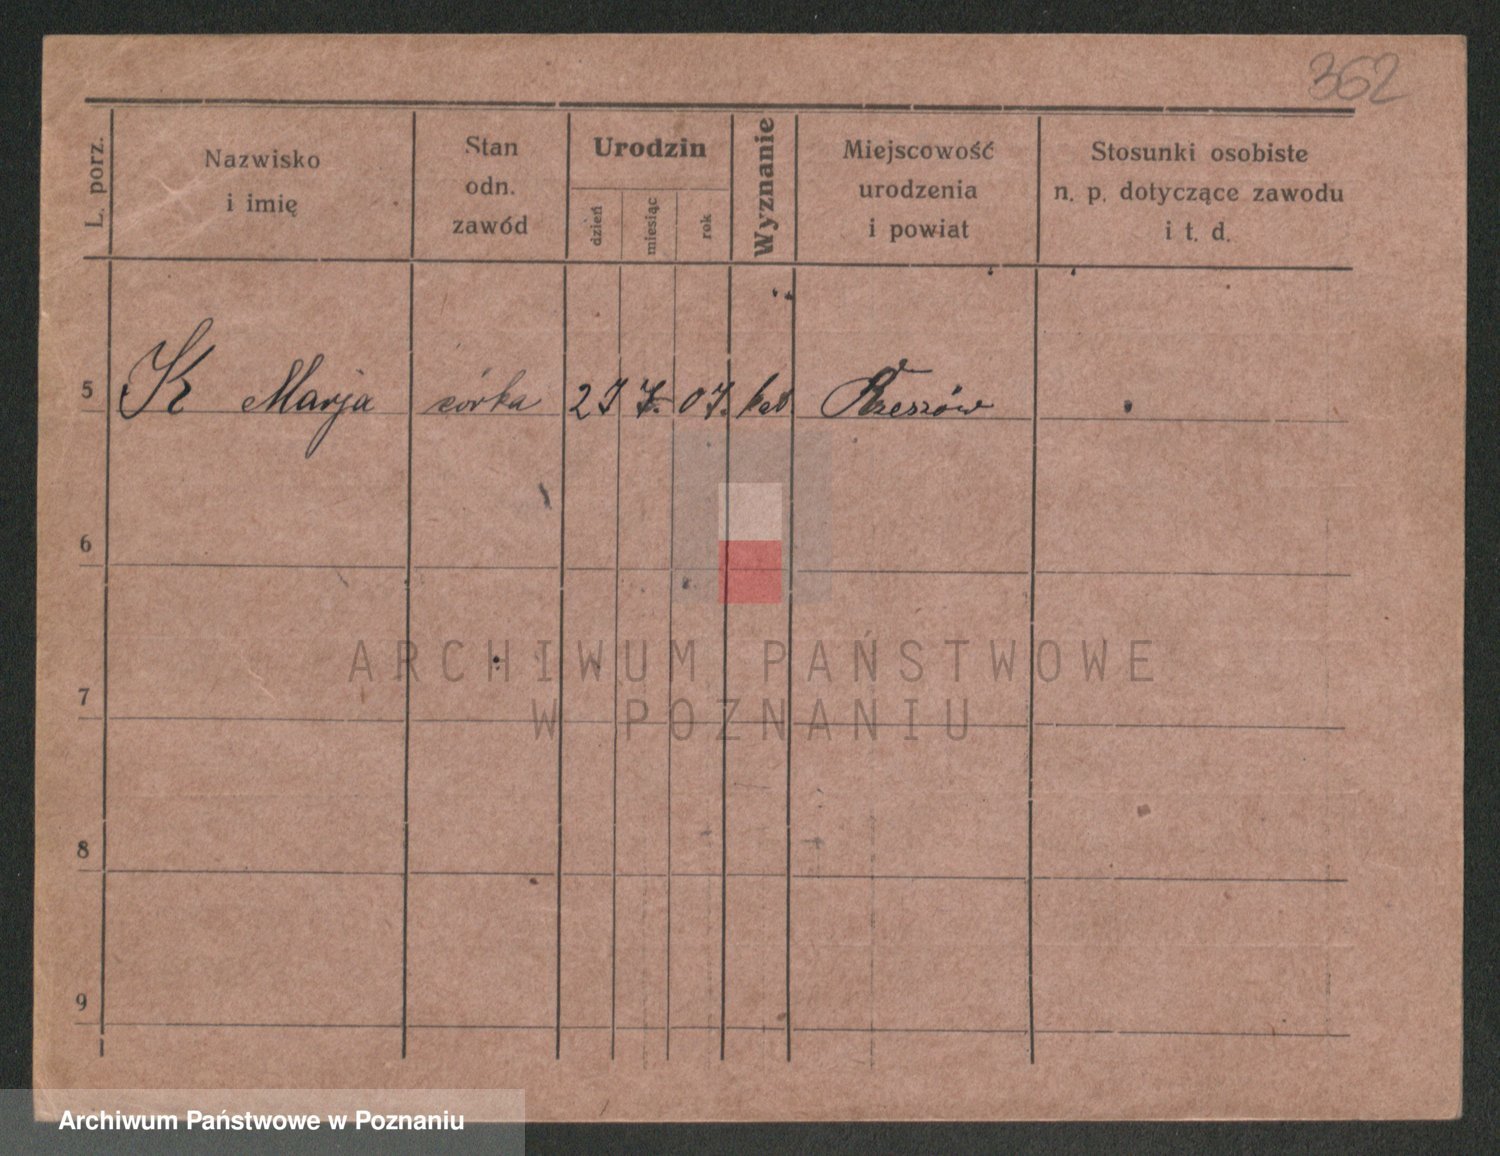 362
L. porz.
Nazwisko
i imię
Stan
odn.
zawód
Urodzin
dzień
miesiąc
rok
Wyznanie
Miejscowość
urodzenia
i powiat
Stosunki osobiste
n. p. dotyczące zawodu
i t. d.
5 K Marja córka 27 7. 07. kat Rzeszów
6
7
8
9
ARCHIWUM PAŃSTWOWE
W POZNANIU
Archiwum Państwowe w Poznaniu